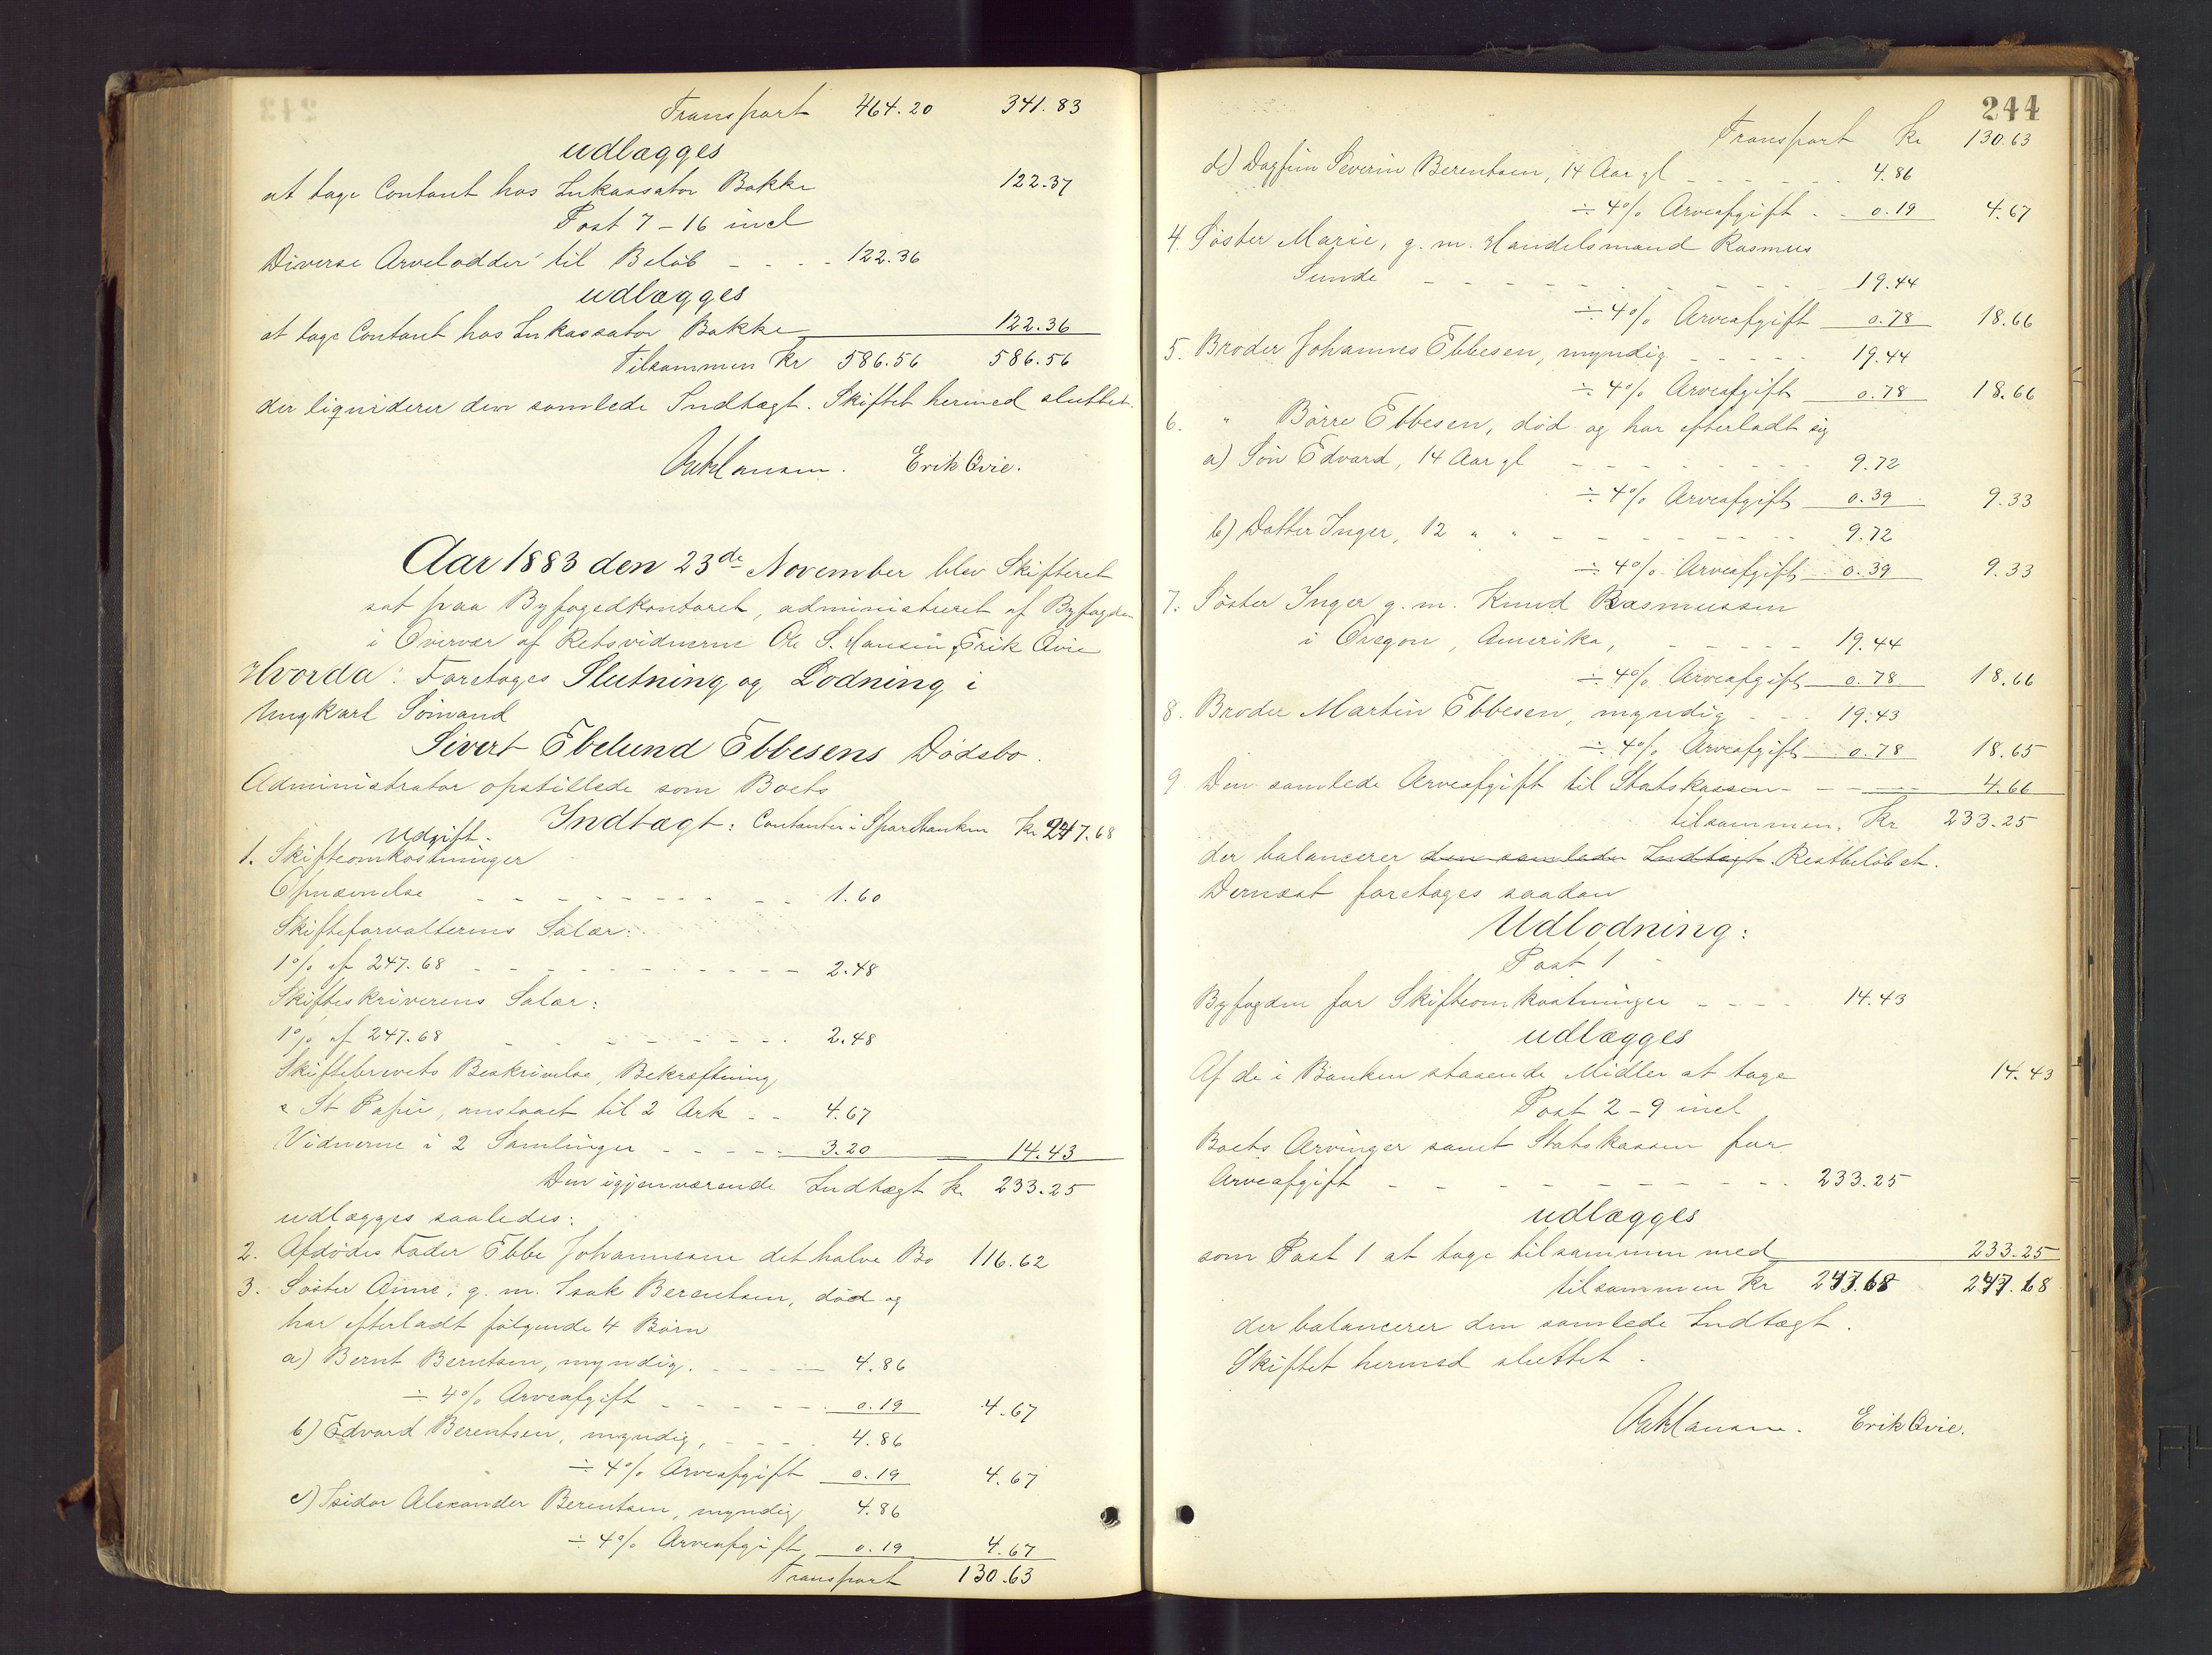 Transport 464.20 341.83
udlægges
at tage Contant hos Inkassator Bakke 122.37
Post 7-16 incl
Diverse Arvelodder til Beløb - - - - 122.36
udlægges
at tage Contant hos Inkassator Bakke 122.36
Tilsammen Kr 586.56 586.56
der liquiderer den samlede Indtægt. Skiftet hermed sluttet.
Erik Qvie.
Aar 1883 den 23de November blev Skifteret
sat paa Byfogedkontoret, administreret af Byfogden
i Overvær af Retsvidnerne Ole S. Hansen, Erik Qvie
Hvorda: Foretoges Slutning og Lodning i
Ungkarl Sømand
Sivert Ebelund Ebbesens Dødsbo.
Administrator opstillede som Boets
Indtægt: Contanter i Sparebanken Kr 247.68
Udgift.
1. Skifteomkostninger
Opnævnelse - - - - - - - - - 1.60
Skifteforvalterens Salær:
1% af 247.68 - - - - - - - - - - - 2.48
Skifteskriverens Salær:
1% af 247.68 - - - - - - - - 2.48
Skiftebrevets Beskrivelse, Bekræftning
& St Papir, anslaaet til 2 Ark - - 4.67
Vidnerne i 2 Samlinger - - - - - 3.20 14.43
Den igjenværende Indtægt Kr 233.25
udlægges saaledes:
2. Afdødes Fader Ebbe Johannesen det halve Bo 116.62
3. Søster Anne, g. m. Isak Berentsen, død og
har efterladt følgende 4 Børn
a) Bernt Berntsen, myndig. - - - - 4.86
÷ 4% Arveafgift - - - - - - 0.19 4.67
b) Edvard Berentsen, myndig, - - - 4.86
÷ 4% Arveafgift 0.19 4.67
c) Isidor Alexander Berentsen, myndig 4.86
÷ 4% Arveafgift 0.19 4.67
Transport 130.63
244
Transport Kr 130.63
d) Dagfinn Severin Berentsen, 14 Aar gl - - - - - - 4.86
÷ 4% Arveafgift - - 0.19 4.67
4. Søster Marie, g. m. Handelsmand Rasmus
Sunde - - - - - - - - - - - 19.44
÷ 4% Arveafgift 0.78 18.66
5. Broder Johannes Ebbesen, myndig - - - - - 19.44
÷ 4% Arveafgift 0.78 18.66
6. " Børre Ebbesen, død og har efterladt sig
a) Søn Edvard, 14 Aar gl - - - - - - - - - 9.72
÷ 4% Arveafgift 0.39 9.33
b) Datter Inger, 12 " " - - - - - - - - 9.72
÷ 4% Arveafgift 0.39 9.33
7. Søster Inger g. m. Knud Rasmussen
i Oregon, Amerika, - - - - - 19.44
÷ 4% Arveafgift 0.78 18.66
8. Broder Martin Ebbesen, myndig - - - 19.43
÷ 4% Arveafgift 0.78 18.65
9 Den samlede Arveafgift til Statskassen - - - 4.66
tilsammen, Kr 233.25
der balancerer den samlede Indtægt. Restbeløbet.
Dernæst foretoges saadan
Udlodning:
Post 1 -
Byfogden for Skifteomkostninger - - - - 14.43
udlægges
Af de i Banken staaende Midler at tage 14.43
Post 2-9 incl
Boets Arvinger samt Statskassen for
Arveafgift - - - - - - - - - - 233.25
udlægges
som Post 1 at tage tilsammen med 233.25
tilsammen Kr 247.68 247.68
der balancerer den samlede Indtægt.
Skiftet hermed sluttet -
Erik Qvie.